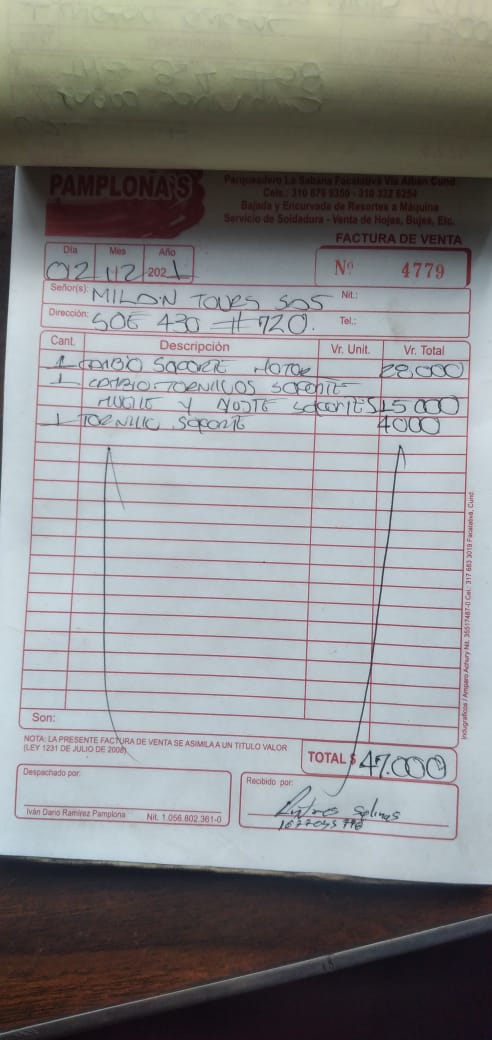 PAMPLONA'S
Parqueadero La Sabana Facatativá Vía Albán Cund.
Bajada y Encurvada de Resortes a Máquina
Servicio de Soldadura - Venta de Hojas, Bujes, Etc.
FACTURA DE VENTA
Día Mes Año
02 12 2021
Nº 4779
Señor(s): MILON TOURS SOS Nit.:
Dirección: SOE 430 # 720. Tel.:
Cant. Descripción Vr. Unit. Vr. Total
1 CAMBIO SOPORTE MOTOR 28.000
1 CAMBIO TORNILLOS SOPORTE
MUELLE Y SOPORTE $15 000
1 TORNILLO SOPORTE 4000
Son:
NOTA: LA PRESENTE FACTURA DE VENTA SE ASIMILA A UN TITULO VALOR
(LEY 1231 DE JULIO DE 2008)
TOTAL $ 47.000
Despachado por:
Iván Darío Ramírez Pamplona Nit. 1.056.802.361-0
Recibido por:
Salinas